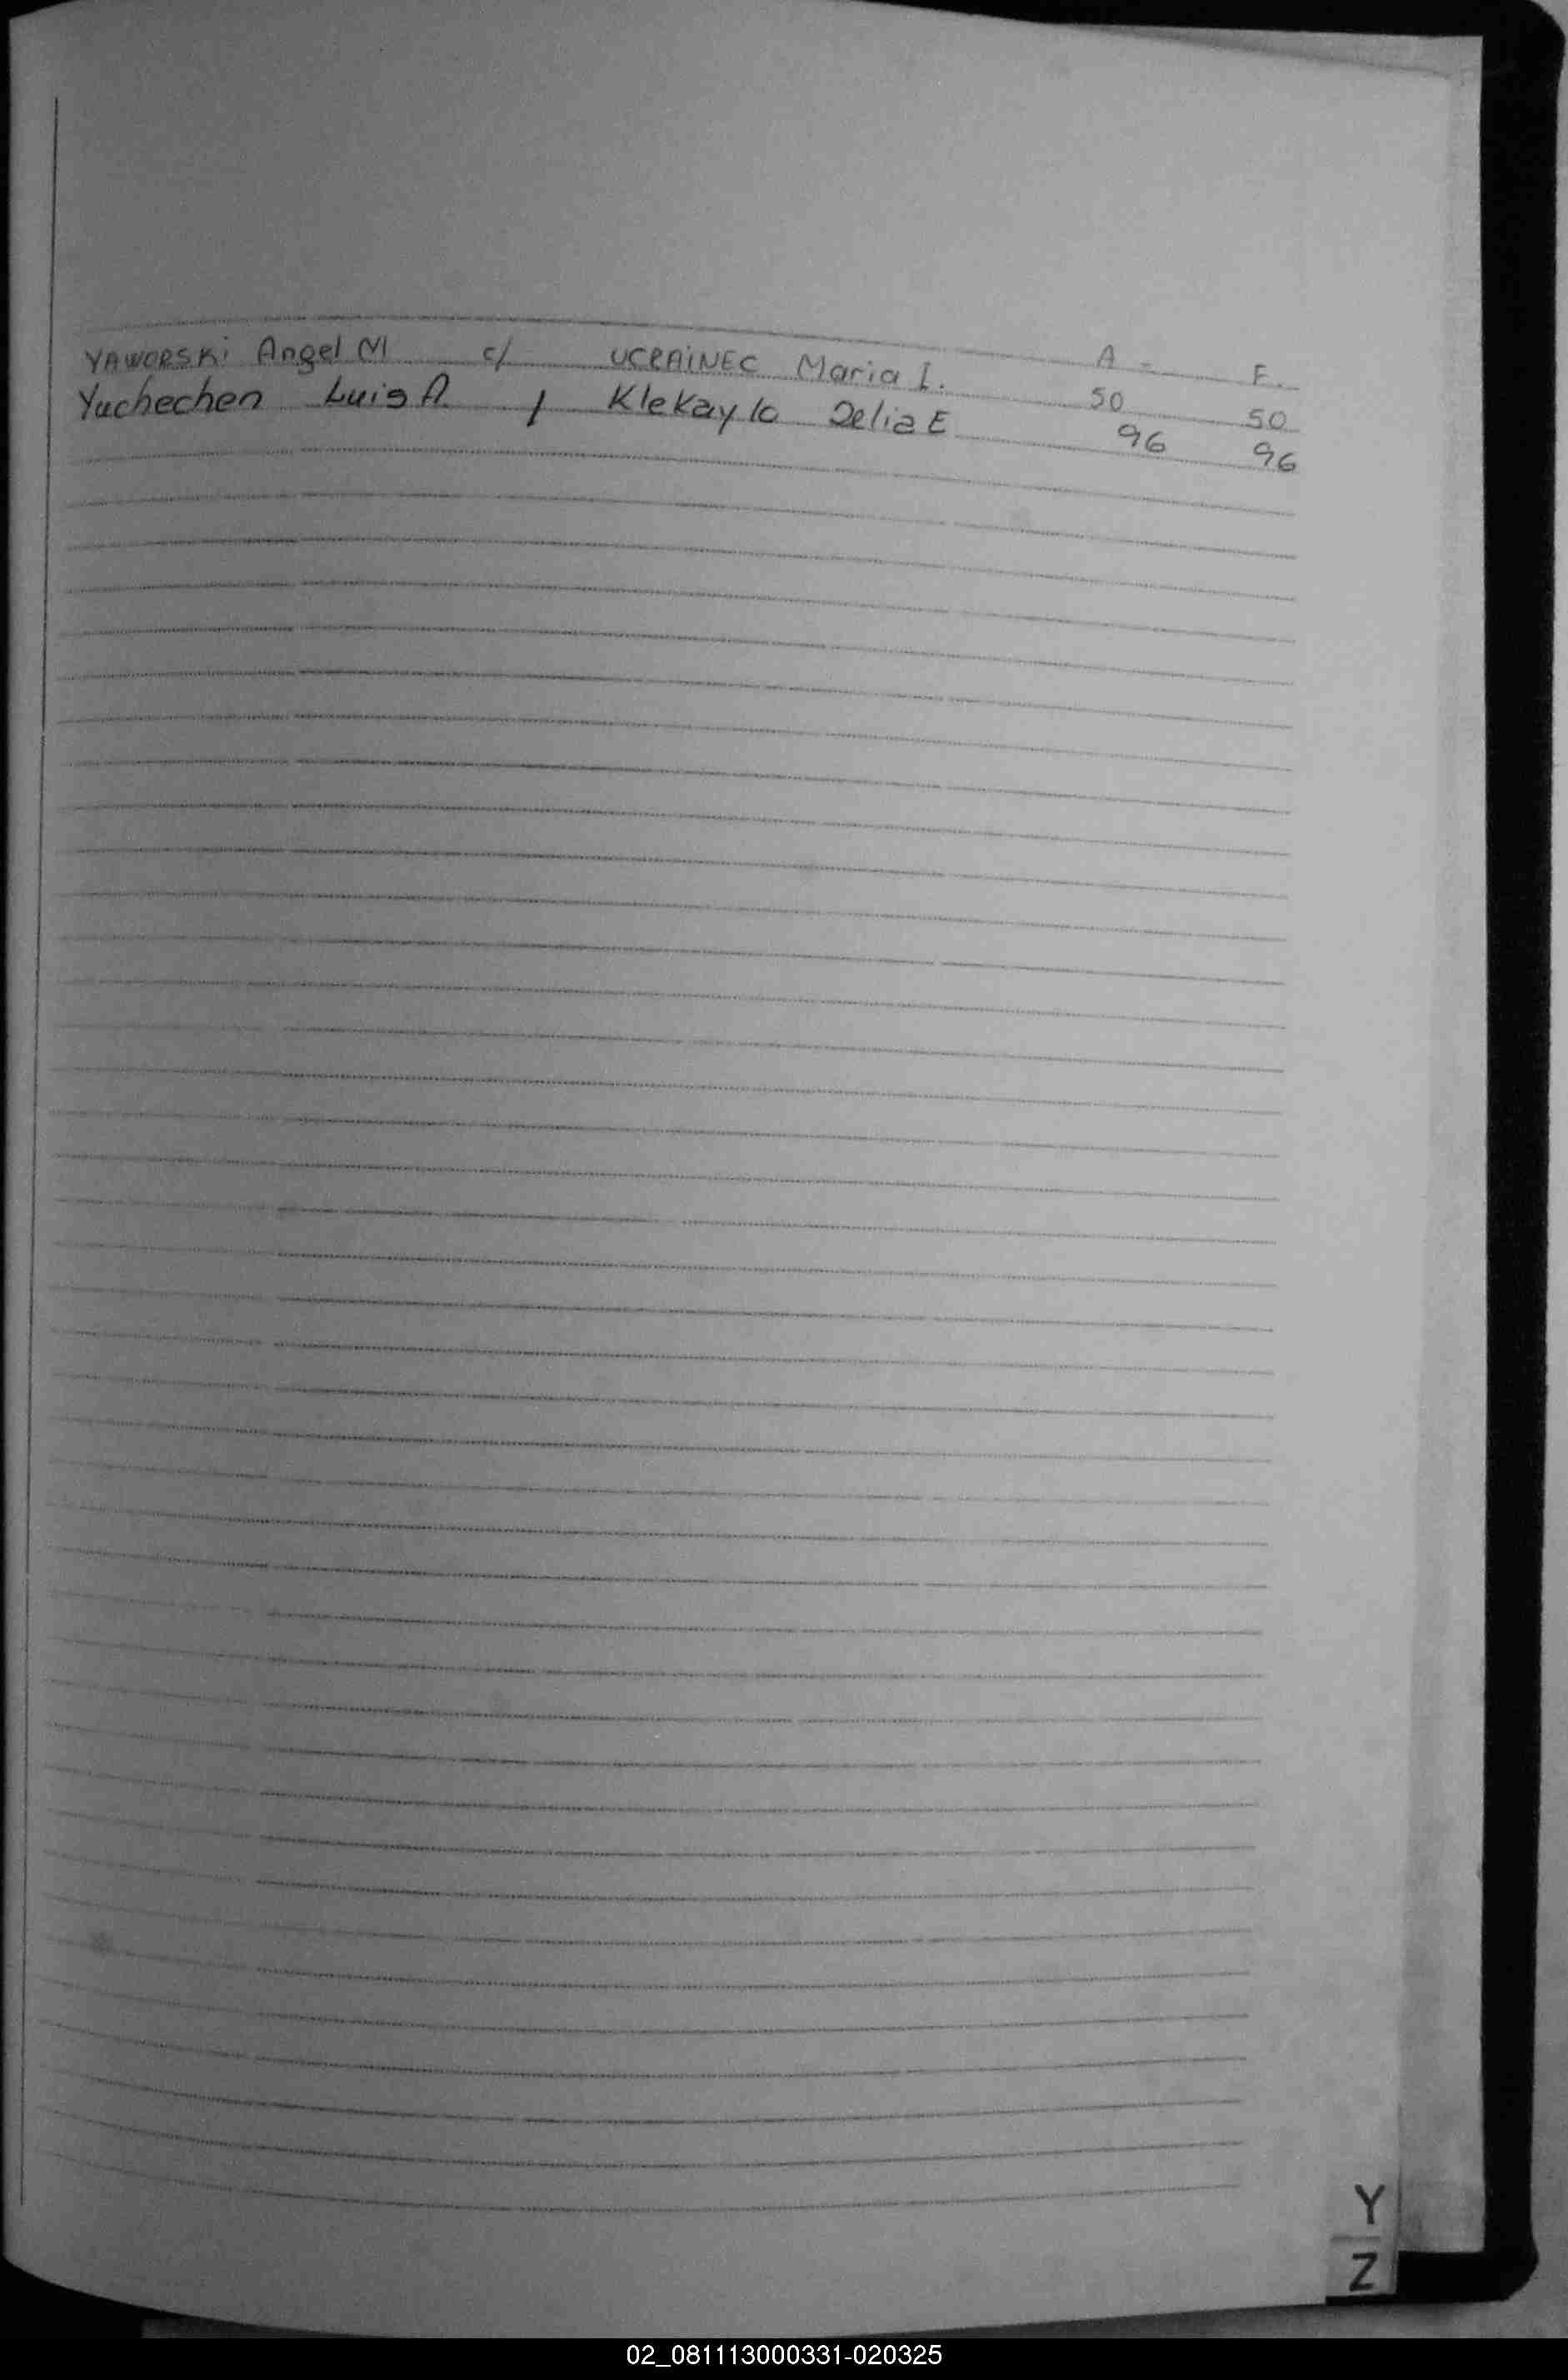 A - F.
YAWORSKi Angel M c/ UCRAiNEC Maria I. 50 50
Yuchechen Luis A / Klekaylo Delia E 96 96
Y
Z
02_081113000331-020325